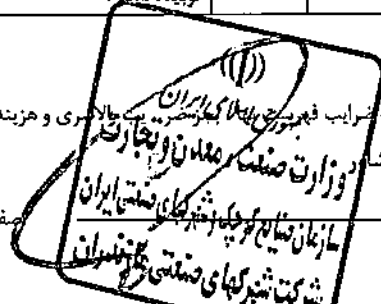 جمهوری اسلامی ایران
ضرایب فهرست بها بجز ضریب بالاسری و هزینه
وزارت صنعت، معدن و تجارت
سازمان صنایع کوچک و شهرکهای صنعتی ایران
شرکت شهرکهای صنعتی مازندران